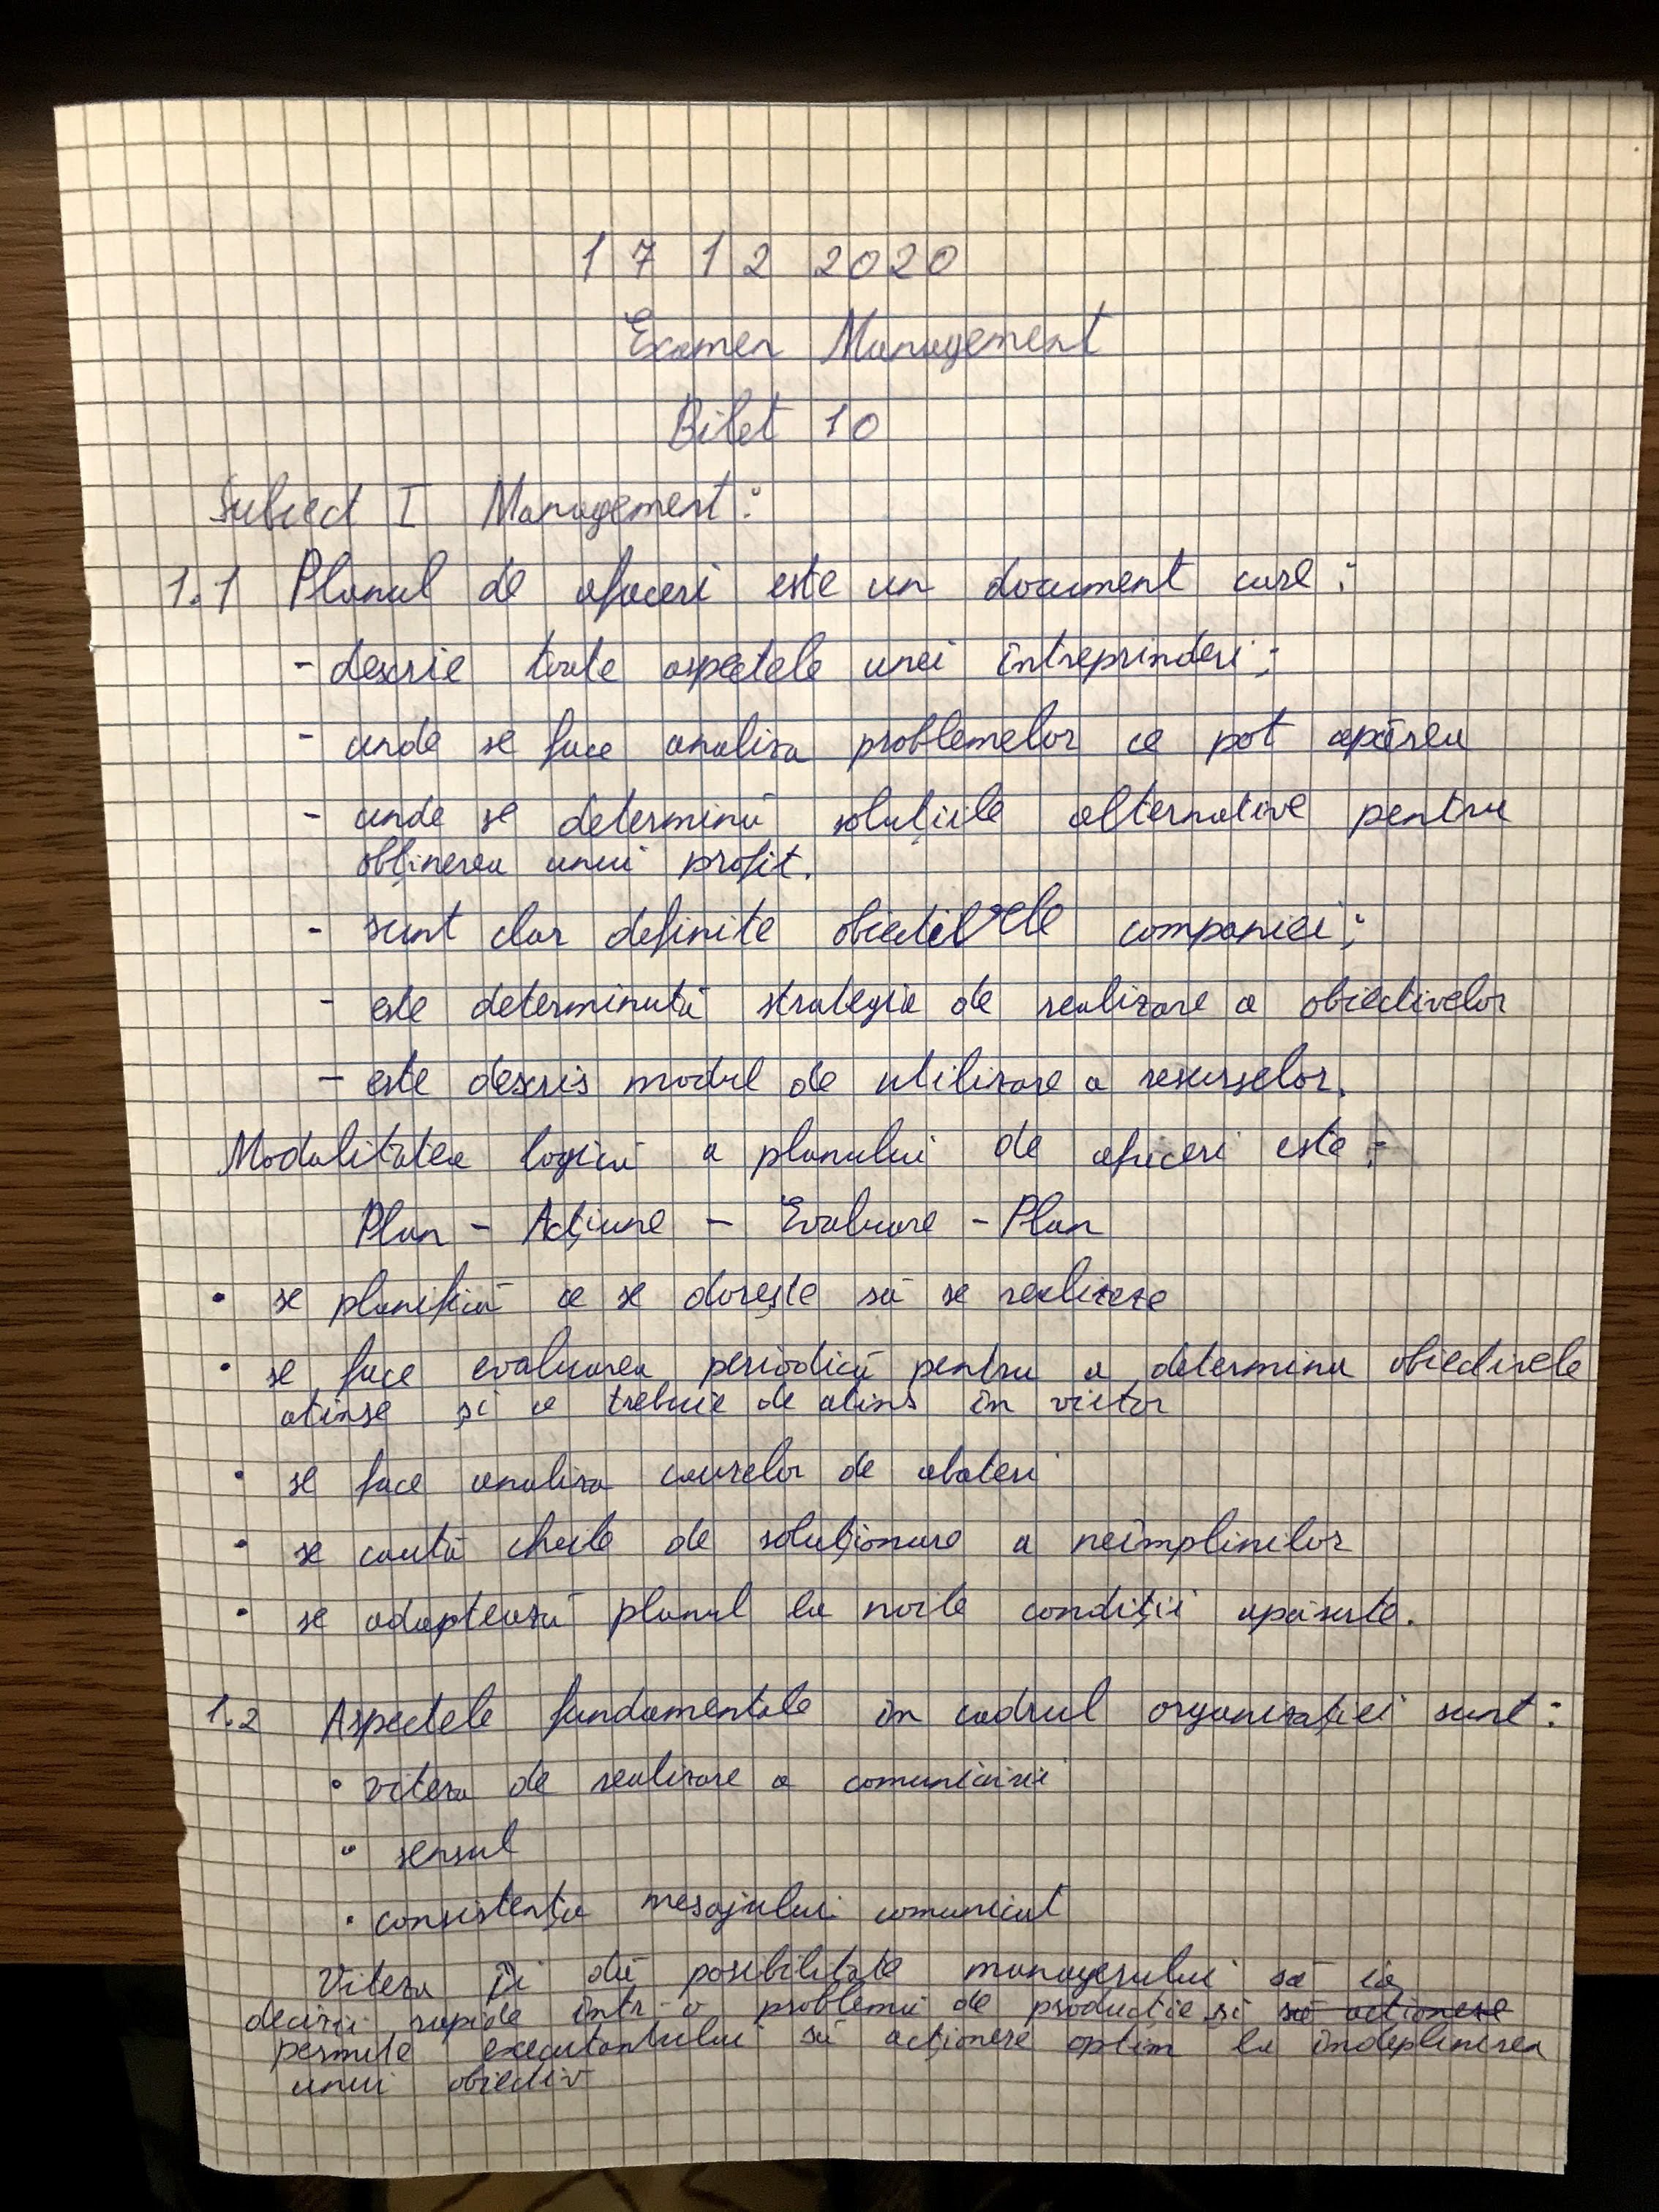 17 12 2020
Examen Management
Bilet 10
Subiect I Management:
1.1 Planul de afaceri este un document care:
- descrie toate aspectele unei întreprinderi;
- unde se face analiza problemelor ce pot apărea
- unde se determină soluțiile alternative pentru
obținerea unui profit.
- sunt clar definite obiectivele companiei;
- este determinată strategia de realizare a obiectivelor
- este descris modul de utilizare a resurselor.
Modalitatea logică a planului de afaceri este:
Plan - Acțiune - Evaluare - Plan
• se planifică ce se dorește să se realizeze
• se face evaluarea periodică pentru a determina obiectivele
atinse și ce trebuie de atins în viitor
• se face analiza cauzelor de abateri
• se caută cheile de soluționare a neîmplinilor
• se adaptează planul la noile condiții apărute.
1.2 Aspectele fundamentale în cadrul organizației sunt:
• viteza de realizare a comunicării
• sensul
• consistența mesajului comunicat
Viteza îi dă posibilitate managerului să ia
decizii rapide într-o problemă de producție și să acționeze
permite executantului să acționeze optim la îndeplinirea
unui obiectiv